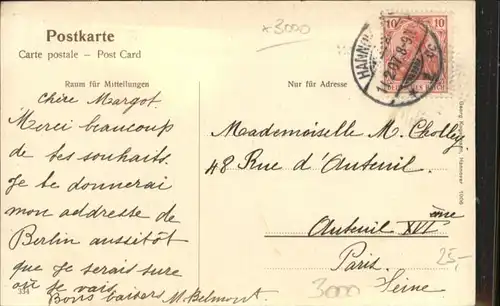 Postkarte
Carte postale – Post Card
Raum für Mitteilungen
Nur für Adresse
x3000
10 10
14.2.07. 8-9
Chère Margot.
Merci beaucoup
de tes souhaits.
Je te donnerai
mon addresse de
Berlin aussitôt
que je serais sure
où je vais.
Bons baisers M. Belmont.
Mademoiselle M. Cholley
48 Rue d'Auteuil.
Auteuil XVI ème
Paris.
Seine
25,-
3000
334
Hannover 1906